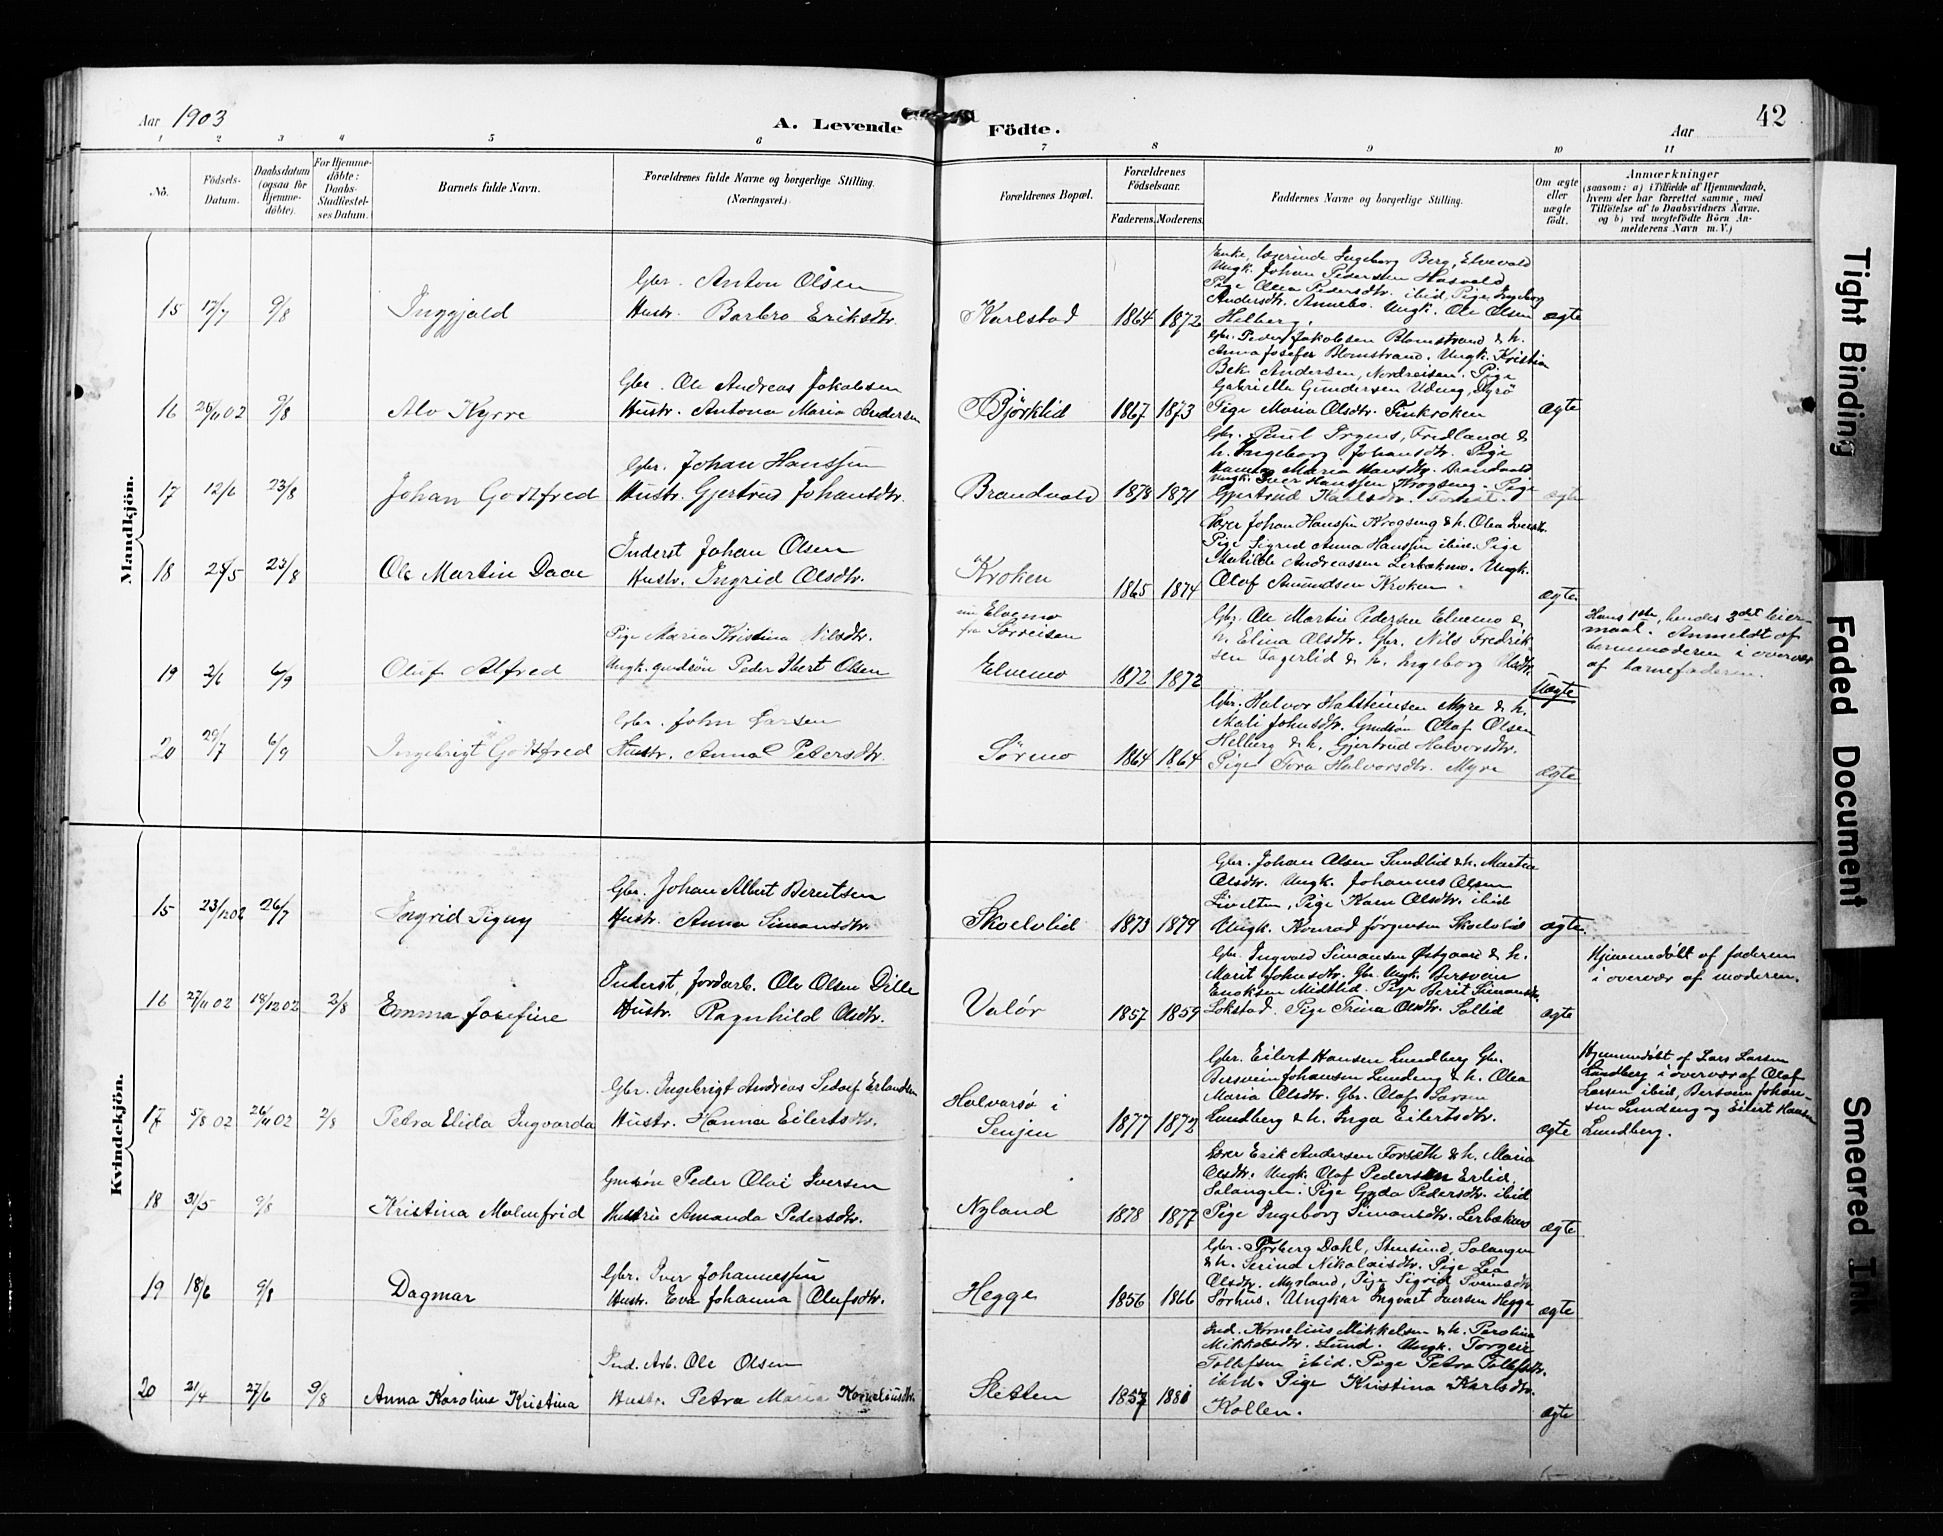 Aar 1903
A. Levende Födte.
Aar
42
1 2 3 4 5 6 7 8 9 10 11
No.
Födsels-Datum.
Daabsdatum (ogsaa for Hjemme-döbte).
For Hjemme-döbte: Daabs-Stadfæstel-ses Datum.
Barnets fulde Navn.
Forældrenes fulde Navne og borgerlige Stilling. (Næringsvei.)
Forældrenes Bopæl.
Forældrenes Födselsaar.
Faderens. Moderens.
Faddernes Navne og borgerlige Stilling.
Om ægte eller uægte født.
Anmærkninger
(saasom: a) i Tilfælde af Hjemmedaab,
hvem der har forrettet samme, med
Tilföielse af to Daabsvidners Navne,
og b) ved uægtefödte Börn An-
melderens Navn m. V.)
Mandkjön.
15 17/7 9/8 Inggjald
Gbr. Anton Olsen
Hustr. Barbro Eriksdtr.
Karlstad 1864 1872
Enke, Ingeborg Berg, Elvevold
Ungk. Johan Pedersen Hasvold
Pige Olea Pedersdtr. ibid, Pige Ingeborg
Andersdtr. Annebo. Ungk. Ole Olsen
Helberg.
ægte
16 26/11 02 9/8 Alv Kyrre
Gbr. Ole Andreas Jakobsen
Hustr. Antona Maria Andersen
Björklid 1867 1873
Gbr. Peder Jakobsen Blomstrand & h.
Anna Josefa Blomstrand. Ungk. Kristian
Bek Andersen, Nordreisen. Pige
Gabriella Gundersen Dyrö
Pige Maria Olsdtr. Finkroken
ægte
17 12/6 23/8 Johan Godtfred
Gbr. Johan Hanssen
Hustr. Gjertrud Johansdtr.
Brandvold 1878 1871
Gbr. Paul Irgens, Fredland &
h. Ingeborg Johansdtr. Pige
Maria Hansdtr. Brandvold
Ungk. Iver Hanssen Krogseng. Pige
Gjertrud Karlsdtr.
ægte
18 23/8 Ole Martin Daae
Inderst Johan Olsen
Hustr. Ingrid Olsdtr.
Kroken 1865 1874
Johan Hanssen Krogseng & h. Olea Iversdtr.
Pige Sigrid Anna Hanssen ibid. Pige
Matilde Andreassen Lerbækmo. Ungk.
Olaf Amundsen Kroken.
ægte
19 2/6 6/9 Oluf Alfred
Pige Maria Kristina Nilsdtr.
Ungk. gmdsön Peder Ibert Olsen
nu Elvemo
fra Sörreisen
Elvemo 1872 1872
Gbr. Ole Martin Pedersen Elvemo &
h. Elina Olsdtr. Gbr. Nils Fredrik-
sen Fagerlid & h. Ingeborg Olsdtr.
Uægte
Hans 1ste, hendes 3det leier-
maal. Anmeldt af
barnemoderen i overvær
af barnefaderen.
20 29/7 6/9 Ingebrigt Godtfred
Gbr. John Larsen
Hustr. Anna Petersdtr.
Sörmo 1864 1864
Gbr. Halvor Halsteinsen Myre & h.
Mali Johnsdtr. Gmdsön Olaf Olsen
Helberg & h. Gjertrud Halvorsdtr.
Pige Tora Halvorsdtr. Myre
ægte
Kvindekjön.
15 23/12 02 26/7 Ingrid Signy
Gbr. Johan Albert Berntsen
Hustr. Anna Simonsdtr.
Skoelvlid 1873 1879
Gbr. Johan Olsen Sundlid & h. Martea
Olsdtr. Ungk. Johannes Olsen
Pige Karn Olsdtr. ibid
Ungk. Konrad Jörgensen Skoelvlid
ægte.
16 27/11 02 18/12 02 2/8 Emma Josefine
Inderst, Jordarb. Ole Olsen Dille
Hustr. Ragnhild Olsdtr.
Valör 1857 1859
Gbr. Ingvald Simonsen Östgaard & h.
Marit Johnsdtr. Gbr. Ungk. Bersvein
Enoksen Midtlid. Pige Berit Simonsdtr.
Lökstad. Pige Trina Olsdtr. Sollid
ægte
Hjemmedöbt af faderen
i overvær af moderen.
17 5/8 02 26/11 02 2/8 Petra Elida Ingvarda
Gbr. Ingebrigt Andreas Sedolf Erlandsen
Hustr. Hanna Eilertsdtr.
Halvarsö i
Senjen 1877 1872
Gbr. Eilert Hansen Lundberg Gbr.
Bersvein Johansen Lundeng & h. Olea
Maria Olsdtr. Gbr. Olaf Larsen
Lundberg & h. Inga Eilertsdtr.
ægte
Hjemmedöbt af Lars Larsen
Lundberg i overvær af Olaf
Larsen ibid, Bersvein Johan-
sen Lundeng og Eilert Hansen
Lundberg.
18 31/5 9/8 Kristina Malmfrid
Gmdsön Peder Olai Iversen
Hustru Amanda Pedersdtr.
Nyland 1878 1877
Erik Andersen Forseth & h. Maria
Olsdtr. Ungk. Olaf Pedersen Evlid,
Salangen. Pige Gyda Pedersdtr. ibid
Pige Ingeborg Simonsdtr. Lerbækmo
ægte
19 18/6 9/8 Dagmar
Gbr. Iver Johannessen
Hustr. Eva Johanna Olufsdtr.
Hegge 1856 1866
Gbr. Torberg Dahl, Stensund, Salangen
& h. Serina Nikolaisdtr. Pige Lea
Olsdtr. Myrland, Pige Sigrid Svinsdtr.
Sörhus. Ungkar Ingvart Iversen Hegge
ægte
20 21/4 27/6 9/8 Anna Karoline Kristina
Ind. Arb. Ole Olsen
Hustr. Petra Maria Korneliusdtr.
Sletten 1857 1881
Ind. Kornelius Mikkelsen & h. Perolina
Mikkelsdtr. Lund. Ungk. Torgeir
Tollefsen ibid. Pige Petra Tollefsdtr.
ibid. Pige Kristina Karlsdtr.
Kollen.
ægte
Tight Binding
Faded Document
Smeared Ink